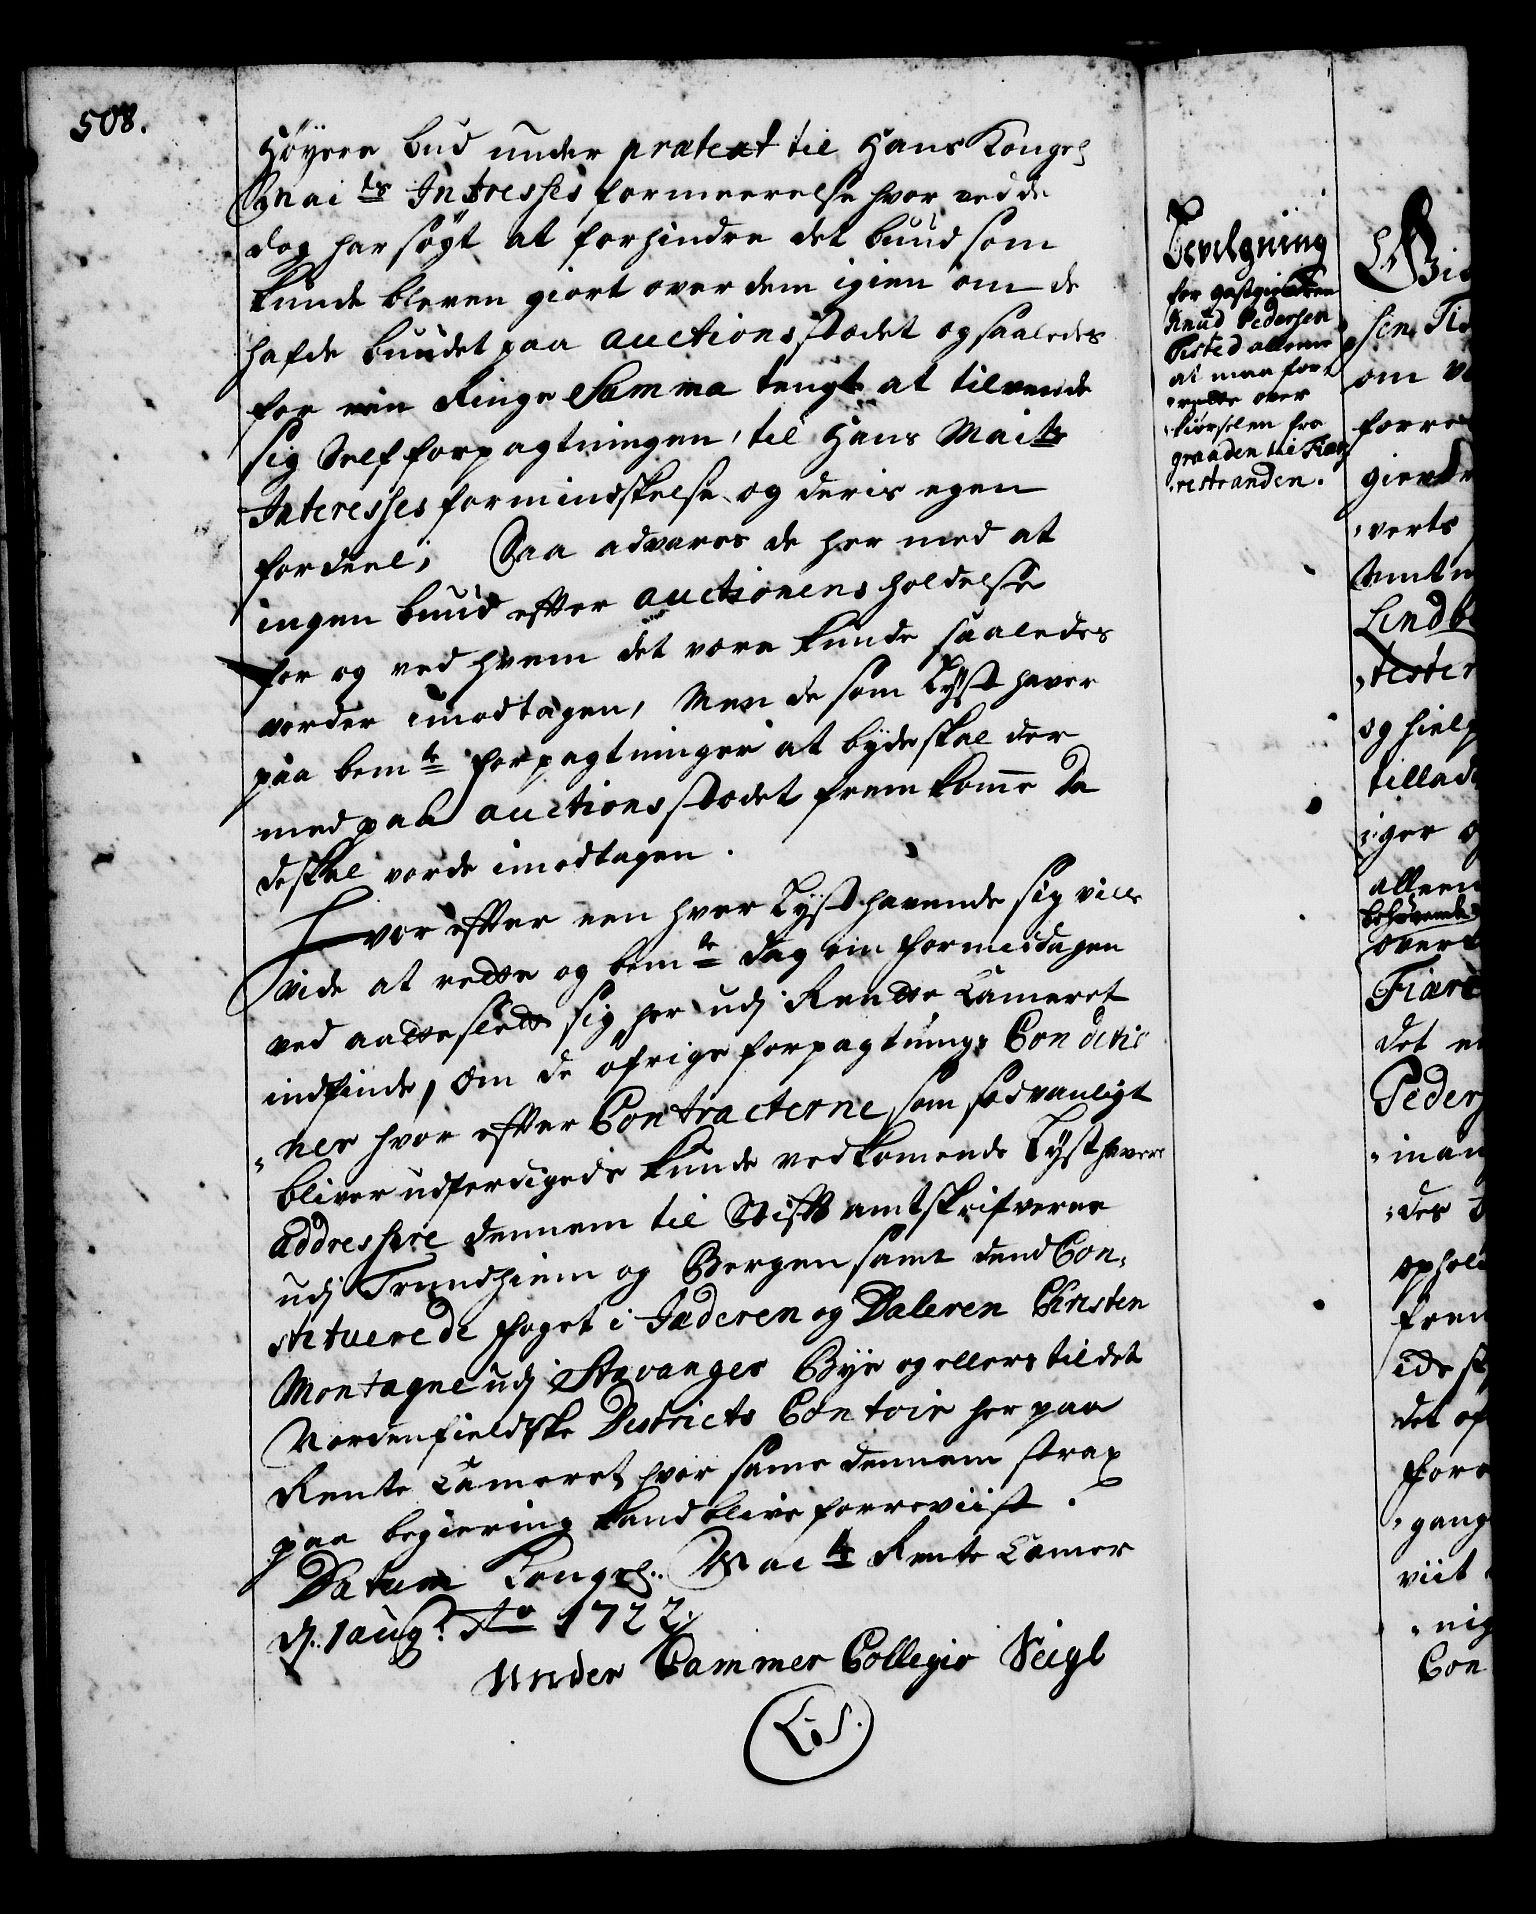 508.
Høyere bud under prætext til Hans Kongel
Mai ts Intresses formeerelse hvor ved de
dog har søgt at forhindre det buud som
kunde bleven giort over dem igien om de
hafde buudet paa auctions stædet og saaledes
for een Ringe Summa tengt at tilvende
sig Self forpagtningen, til Hans Mai ts
Interesses formindskelse og deris egen
fordeel, Saa advares de her med at
ingen buud efter auctionens holdelse
for og ved hvem det være kunde saaledes
vorder imodtagen, Men de som Lyst haver
paa bem te forpagtninger at byde skal der
med paa auctions stædet fremkome Da
de skal vorde imodtagen.
Hvor efter een hver Lysthavende sig ville
vide at rette og bem te dag om formiddagen
ved aatte slett sig her udj Rentte Cameret
indfinde, Om de øfrige forpagtnings Conditio
„ner hvor efter Contracterne som sædvanligt
bliver udferdigede kunde vedkomende Lysthavere
addressere dennem til Stift amtskrifverne
udj Trundhiem og Bergen samt dend Con„
stituerede foget i Jæderen og Daleren Christen
Montagne udj Stavanger Bye og ellers til det
Nordenfieldske Districts Contoir her paa
Rente Cameret, hvor same dennem strax
paa begiering kand blive forreviist.
Datum Kongel. Mai ts Rente Camer
d. 1 aug: Ao 1722.
Under Cammer Collegie Seigl
L.S.
Bevilgning
for gæstgiveren
Knud Pedersen
Tisted alleene
at maa for
„rette over
kiørselen fra
graaden til Fiær
„restranden.
sen Tis
om
forre
„verts
Amtm
Lindb
„tester
og hielp
tillad
„iger
alleen
behøvende
over
Fiære
det
Peders
„man
„des
ophold
frem
det of
„gang
viit
„nig
Con